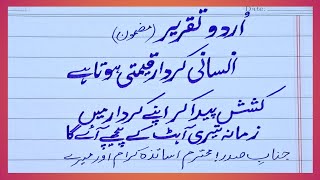 Date:
اُردو تقریر (مضمون)
انسانی کردار قیمتی ہوتا ہے
کشش پیدا کر اپنے کردار میں
زمانہ تیری آہٹ کے پیچھے آئے گا
جناب صدر! محترم اساتذہ کرام اور میرے